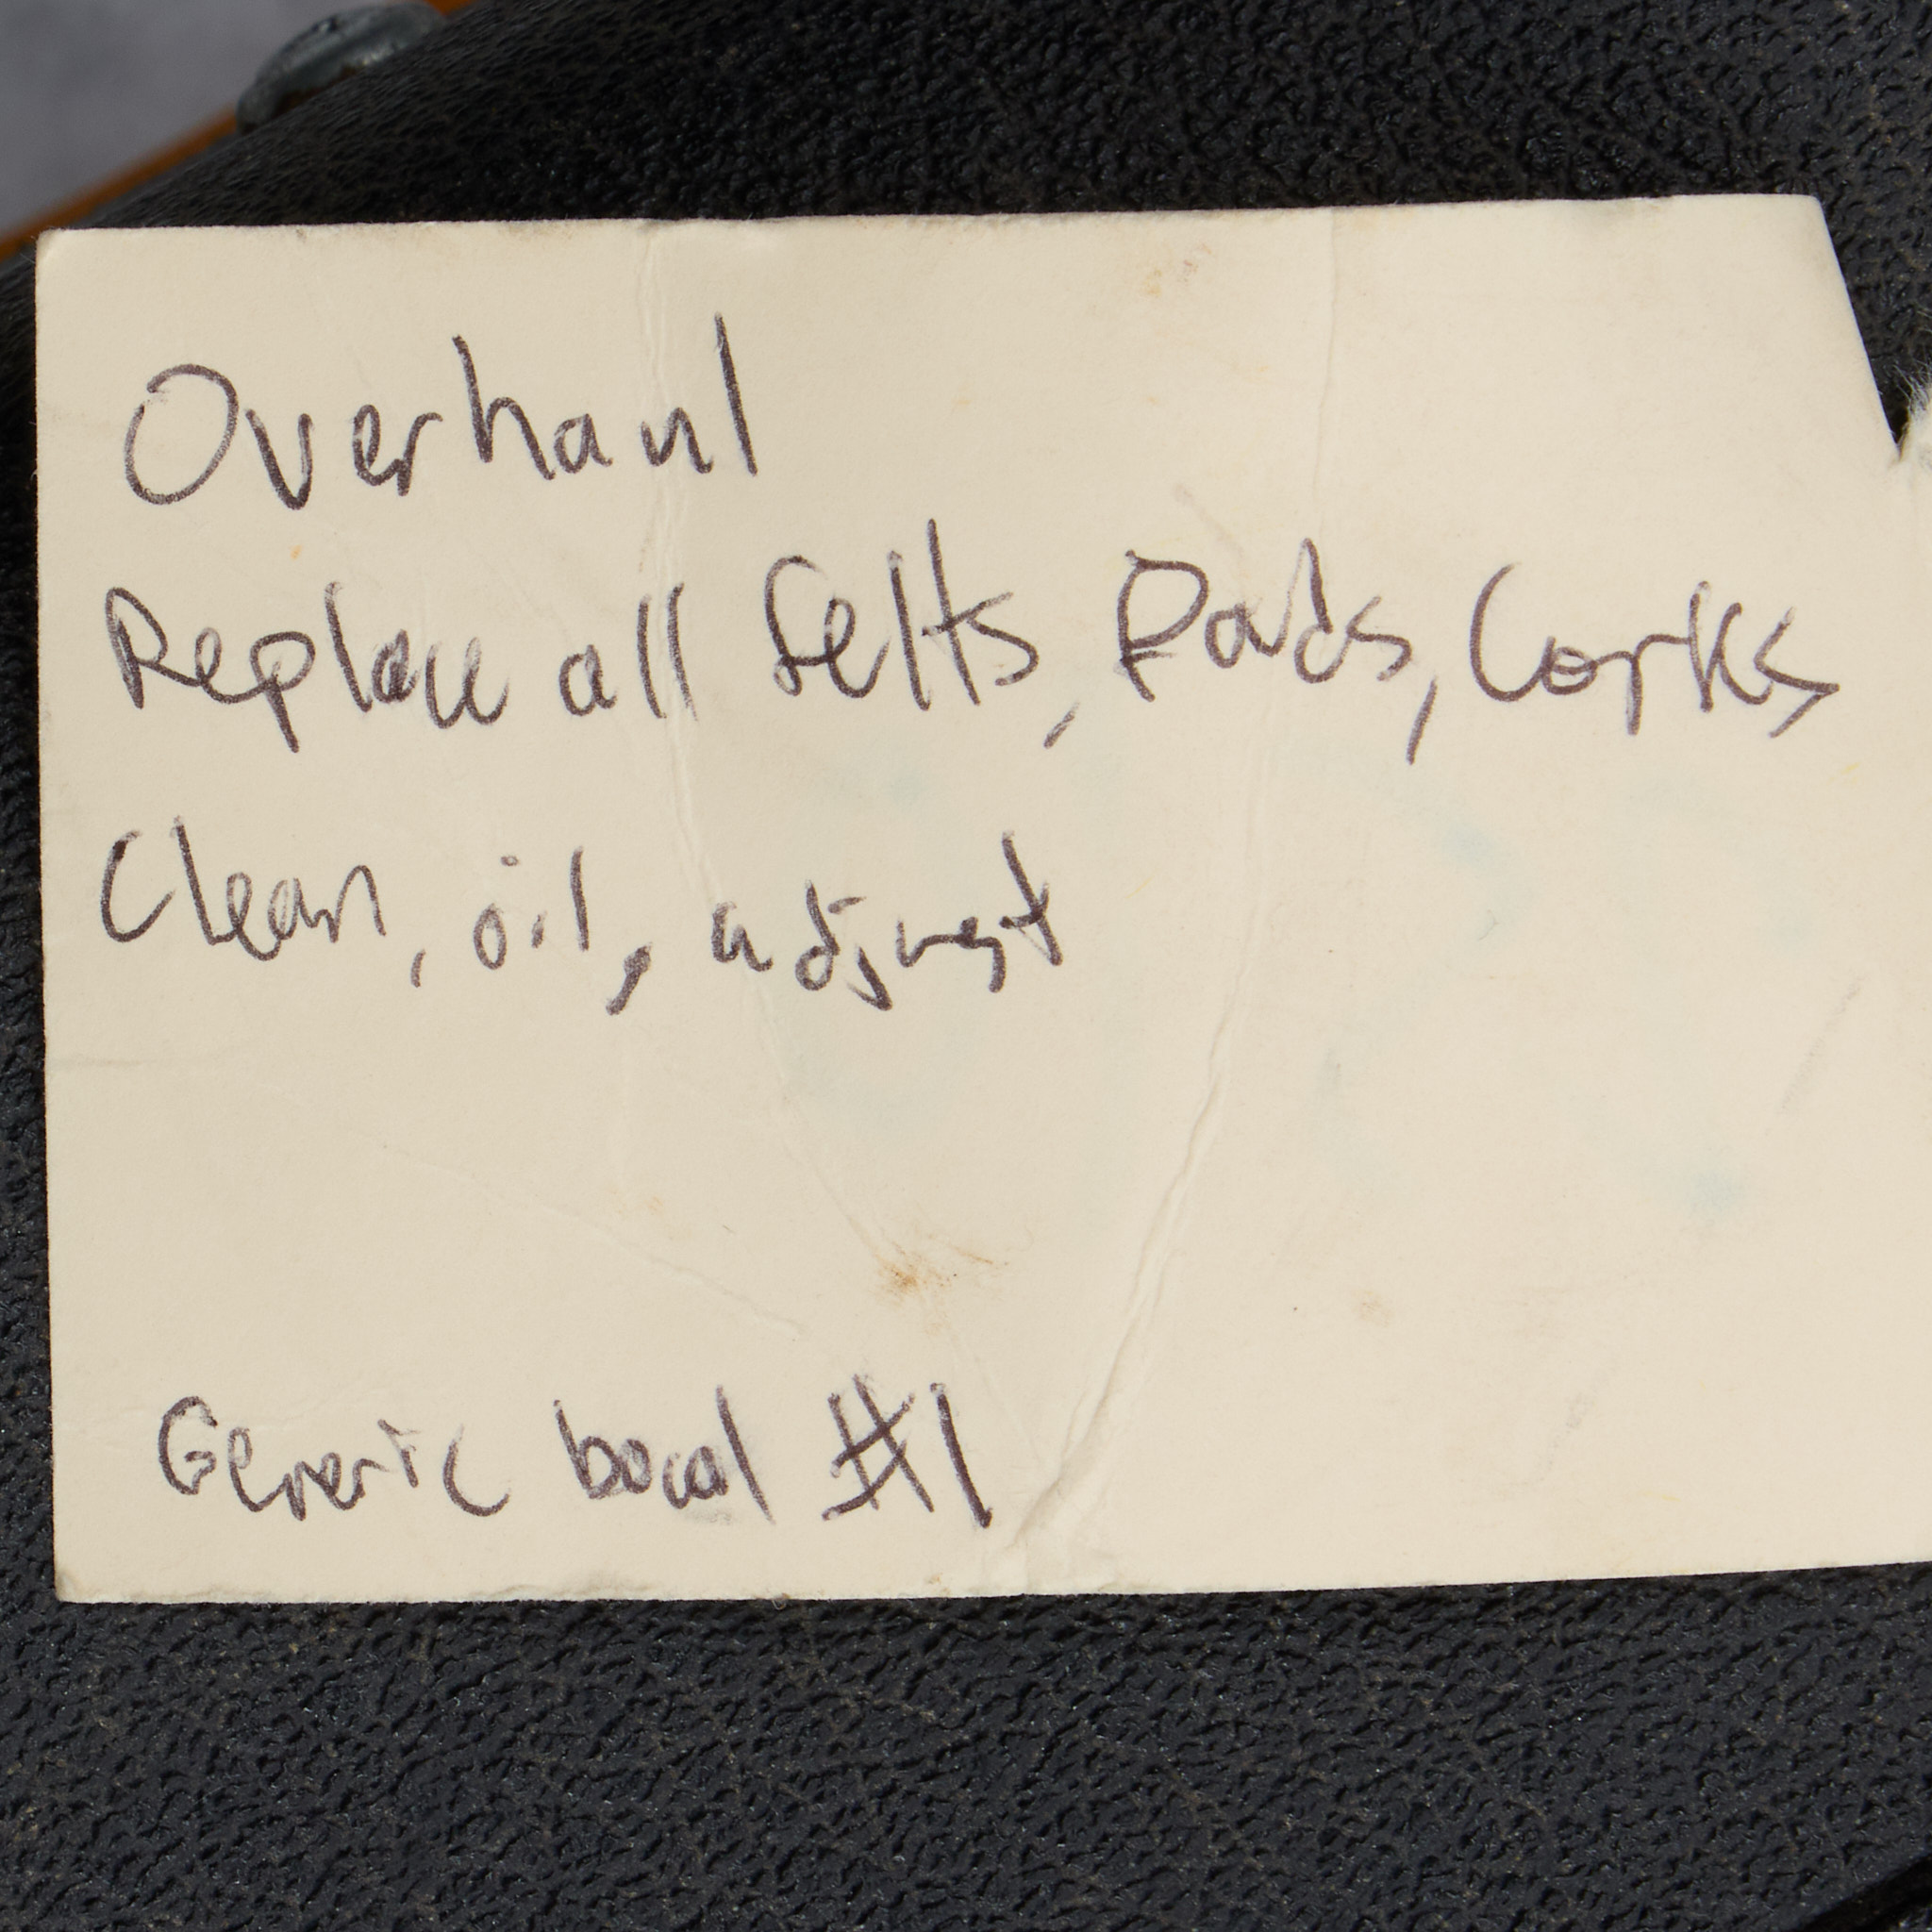 Overhaul
Replace all felts, Pads, Corks
Clean, oil, adjust
Generic bocal #1